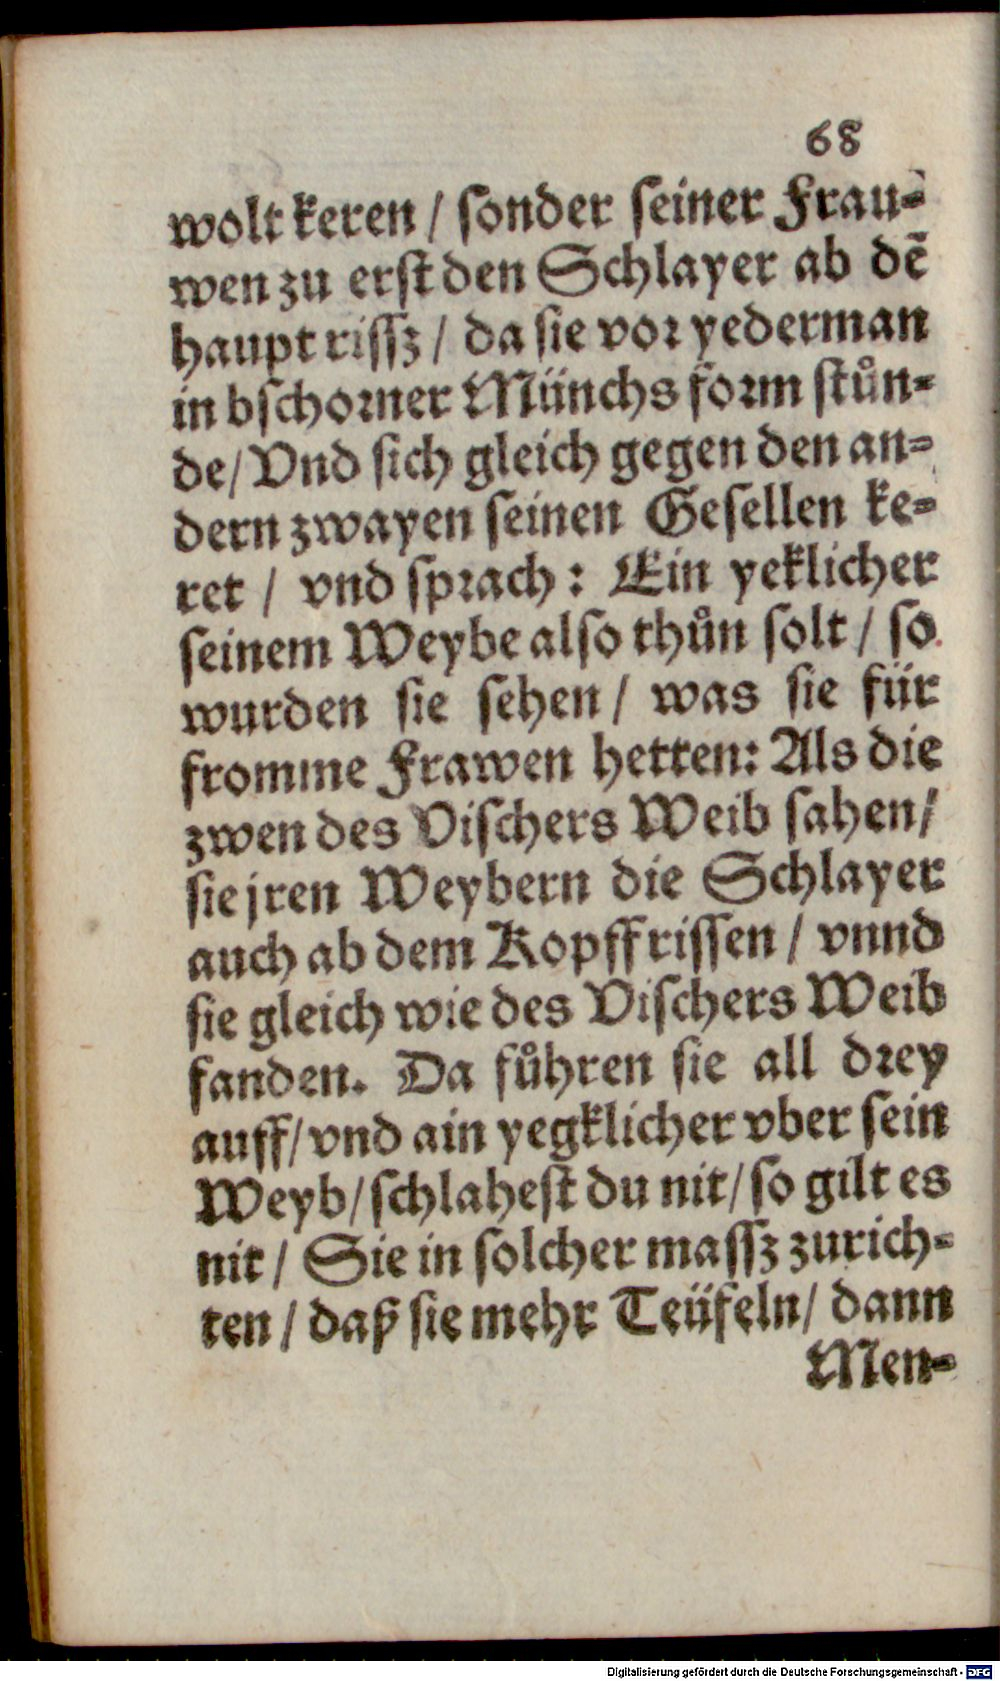 68
wolt keren / sonder seiner Frau-
wen zu erst den Schlayer ab dē
haupt rissz / da sie vor yederman
in bschorner Münchs form stůn-
de / Vnd sich gleich gegen den an-
dern zwayen seinen Gesellen ke-
ret / vnd sprach: Ein yeklicher
seinem Weybe also thůn solt / so
wurden sie sehen / was sie für
fromme Frawen hetten: Als die
zwen des Vischers Weib sahen /
sie jren Weybern die Schlayer
auch ab dem Kopff rissen / vnnd
sie gleich wie des Vischers Weib
fanden. Da fůhren sie all drey
auff / vnd ain yegklicher vber sein
Weyb / schlahest du nit / so gilt es
nit / Sie in solcher massz zurich-
ten / daß sie mehr Teüfeln / dann
Men-
Digitalisierung gefördert durch die Deutsche Forschungsgemeinschaft - DFG